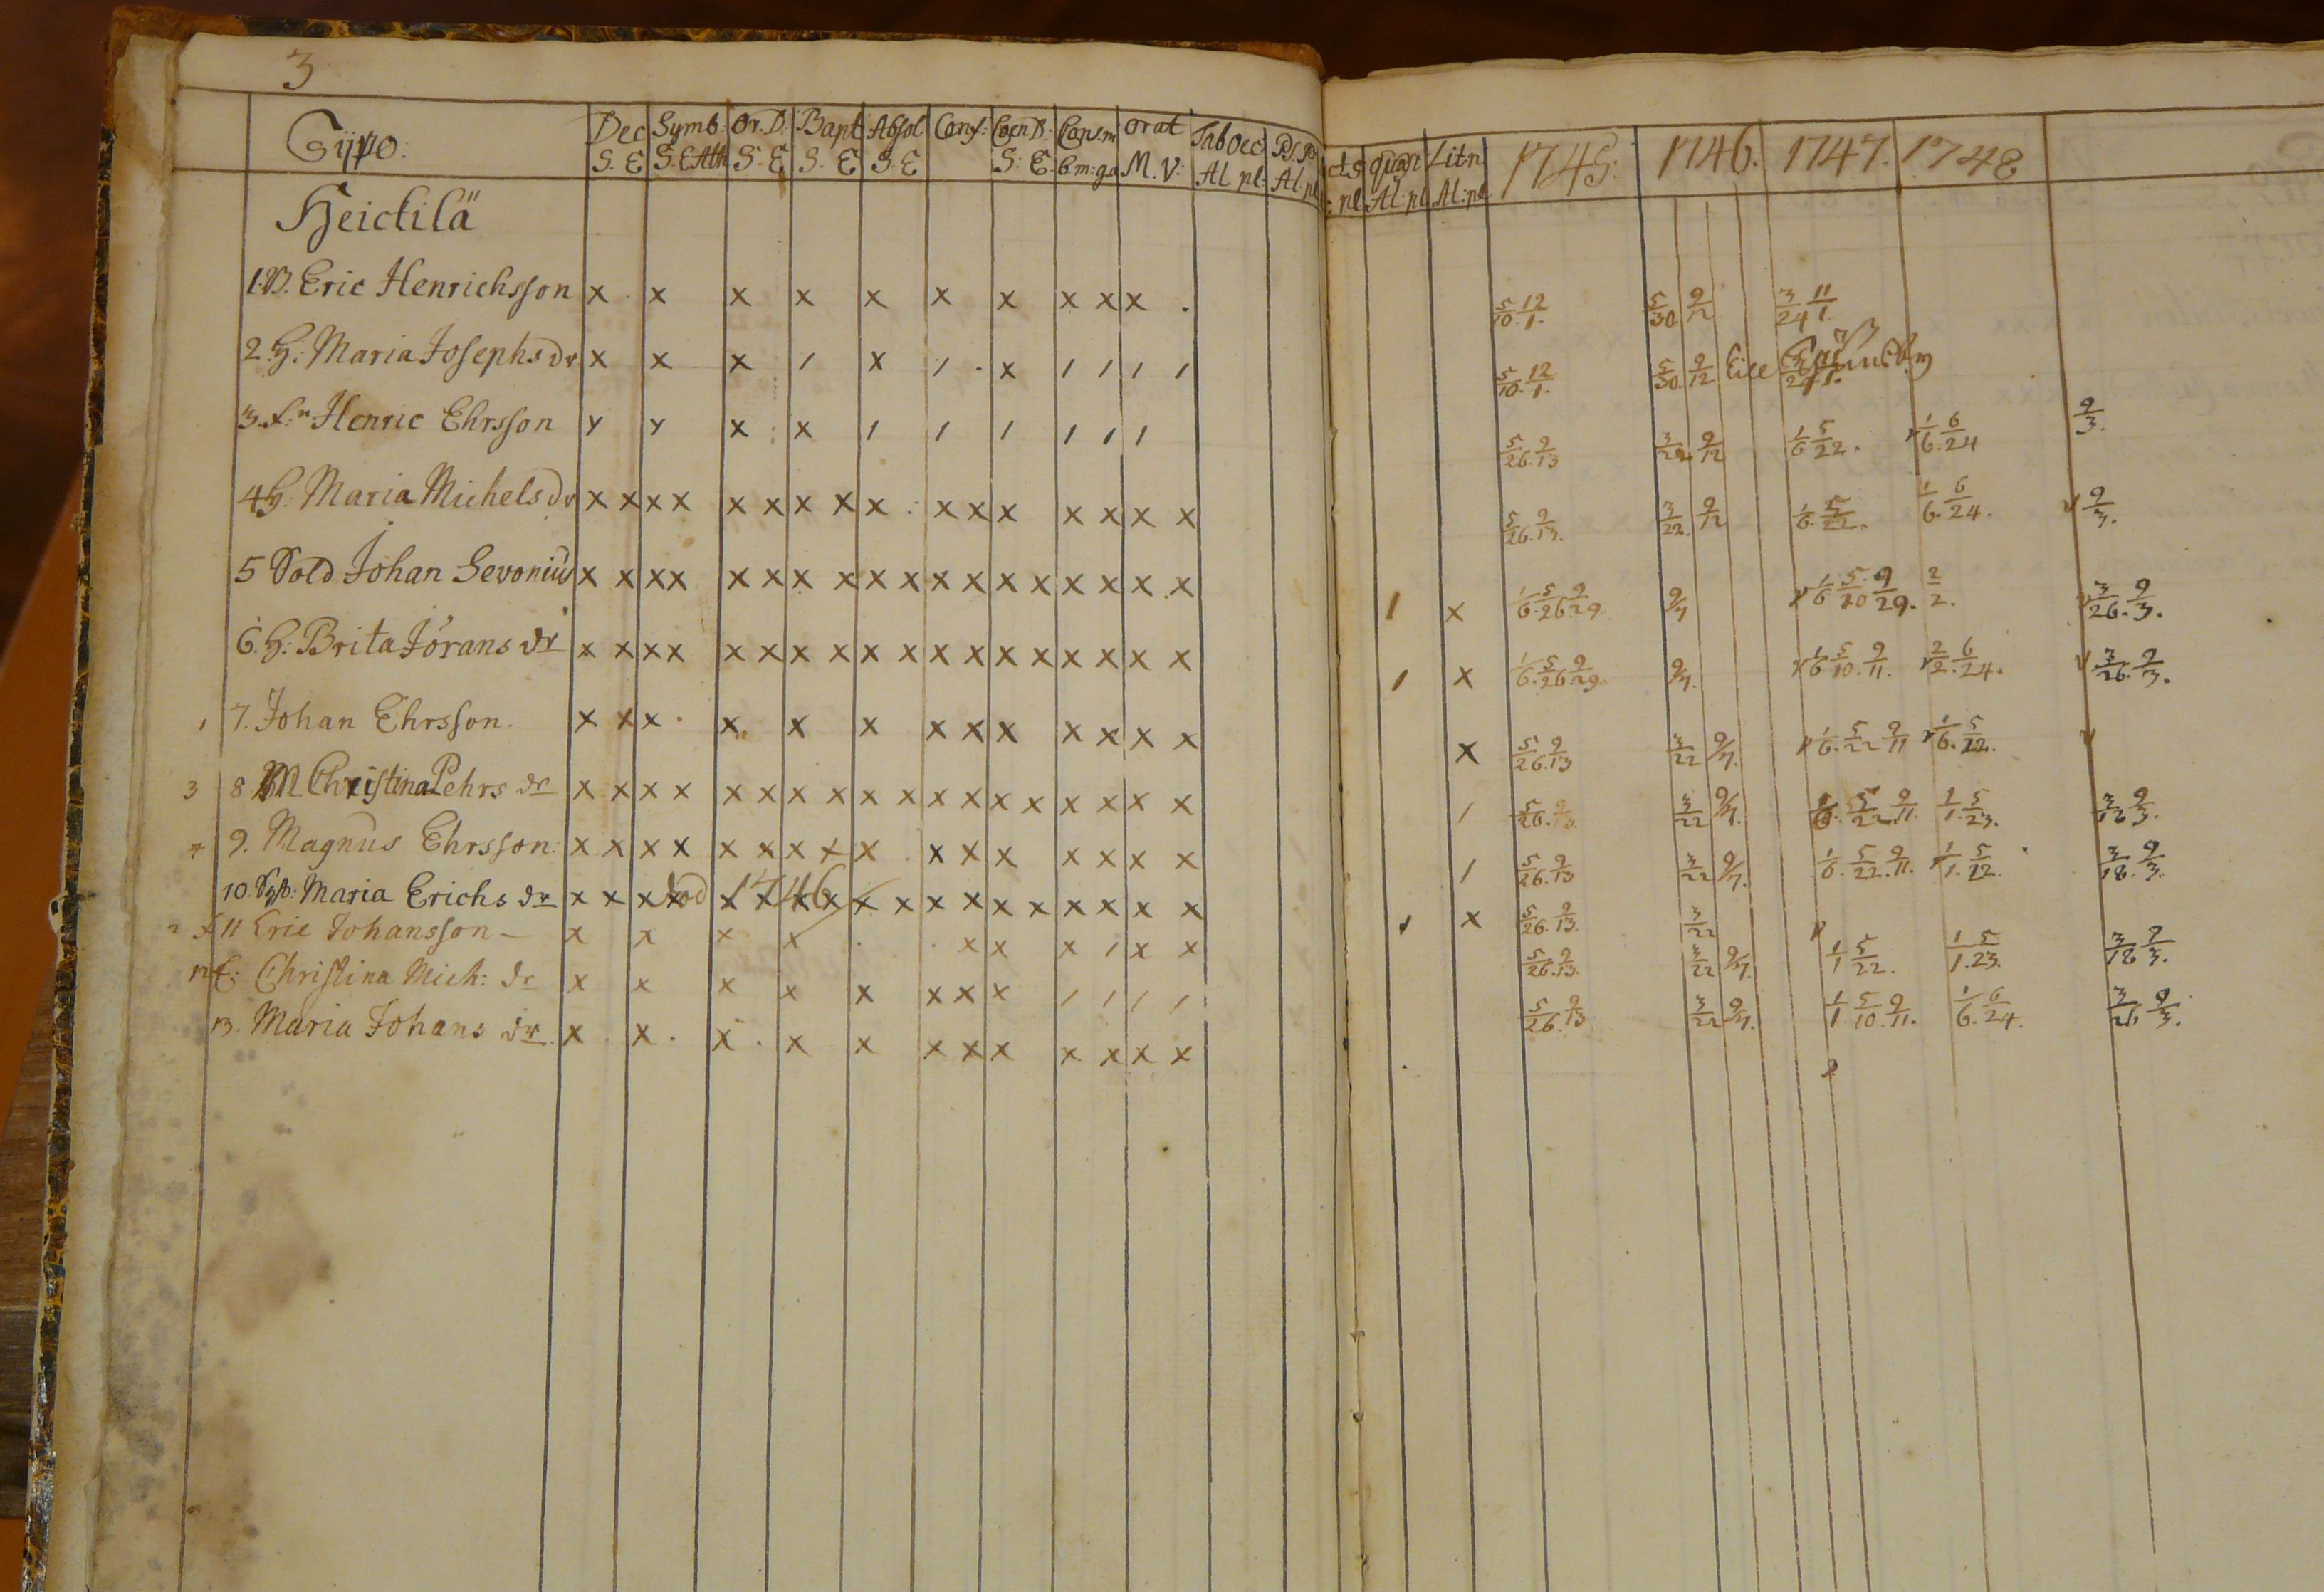 3
Gÿpo: Dec S. E Symb: S. E Ath Or. D. S. E Bapt S. E Absol S. E Conf: Coen D: S. E. Cons.m Orat M. V: Tab Oec: Al pl: Ps. P Al. pl : pl. Quæst Al: pl Litn Al: pl 1745: 1746. 1747. 1748
Heickilä
1. Eric Henrichsson x x x x x x x x x x . 5/10. 12/1. 5/30. 9/12 3/24 11/1.
2. H: Maria Josephs dr x x x / x / . x / / / / 5/10. 12/1. 5/30. 9/12
3. Henric Ehrsson x x x x / / / / / / 5/26. 9/13 3/22 9/12 1/6 5/22. 1/6. 6/24 9/3.
4 H: Maria Michels dr x x x x x x x x x x x x x x x x 5/26. 9/13. 3/22. 9/12 1/6. 5/22. 1/6. 6/24. 9/3.
5 Sold Johan Levonius x x x x x x x x x x x x x x x x x x / x 1/6. 5/26. 9/29. 9/7 1/6 5/20 9/29. 2/2. 3/26. 9/3.
6. H: Brita Jörans dr x x x x x x x x x x x x x x x x x x / x 1/6. 5/26. 9/29. 9/7. 1/6 5/10. 9/11. 2/2. 6/24. 3/26. 9/3.
1 7. Johan Ehrsson. x x x . x x x x x x x x x x x 5/26. 9/13 3/22 9/7. 1/6. 5/22 9/11 1/6. 5/22.
3 8 Christina Pehrs dr x x x x x x x x x x x x x x x x x x / 5/26. 9/13. 3/22 9/7. 1/6. 5/22. 9/11. 1/1. 5/23. 3/18 9/3.
4 9. Magnus Ehrsson: x x x x x x x x x x x x x x x x / 5/26. 9/13 3/22 9/7. 1/6. 5/22. 9/11. 1/1. 5/22. 3/18. 9/3.
10. Maria Erichs dr x x x x död 1746 x x x x x x x x x x x x x x / x 5/26. 9/13. 3/22
2 11 Eric Johansson - x x x x x x x / x x 5/26. 9/13. 3/22 9/7. 1/1 5/22. 1/1. 5/23. 3/18 9/3.
12 Christina Mich: dr x x x x x x x x / / / / 5/26. 9/13 3/22 9/7. 1/1 5/10. 9/11. 1/6. 6/24. 3/26. 9/3.
13. Maria Johans dr. x . x . x . x x x x x x x x x